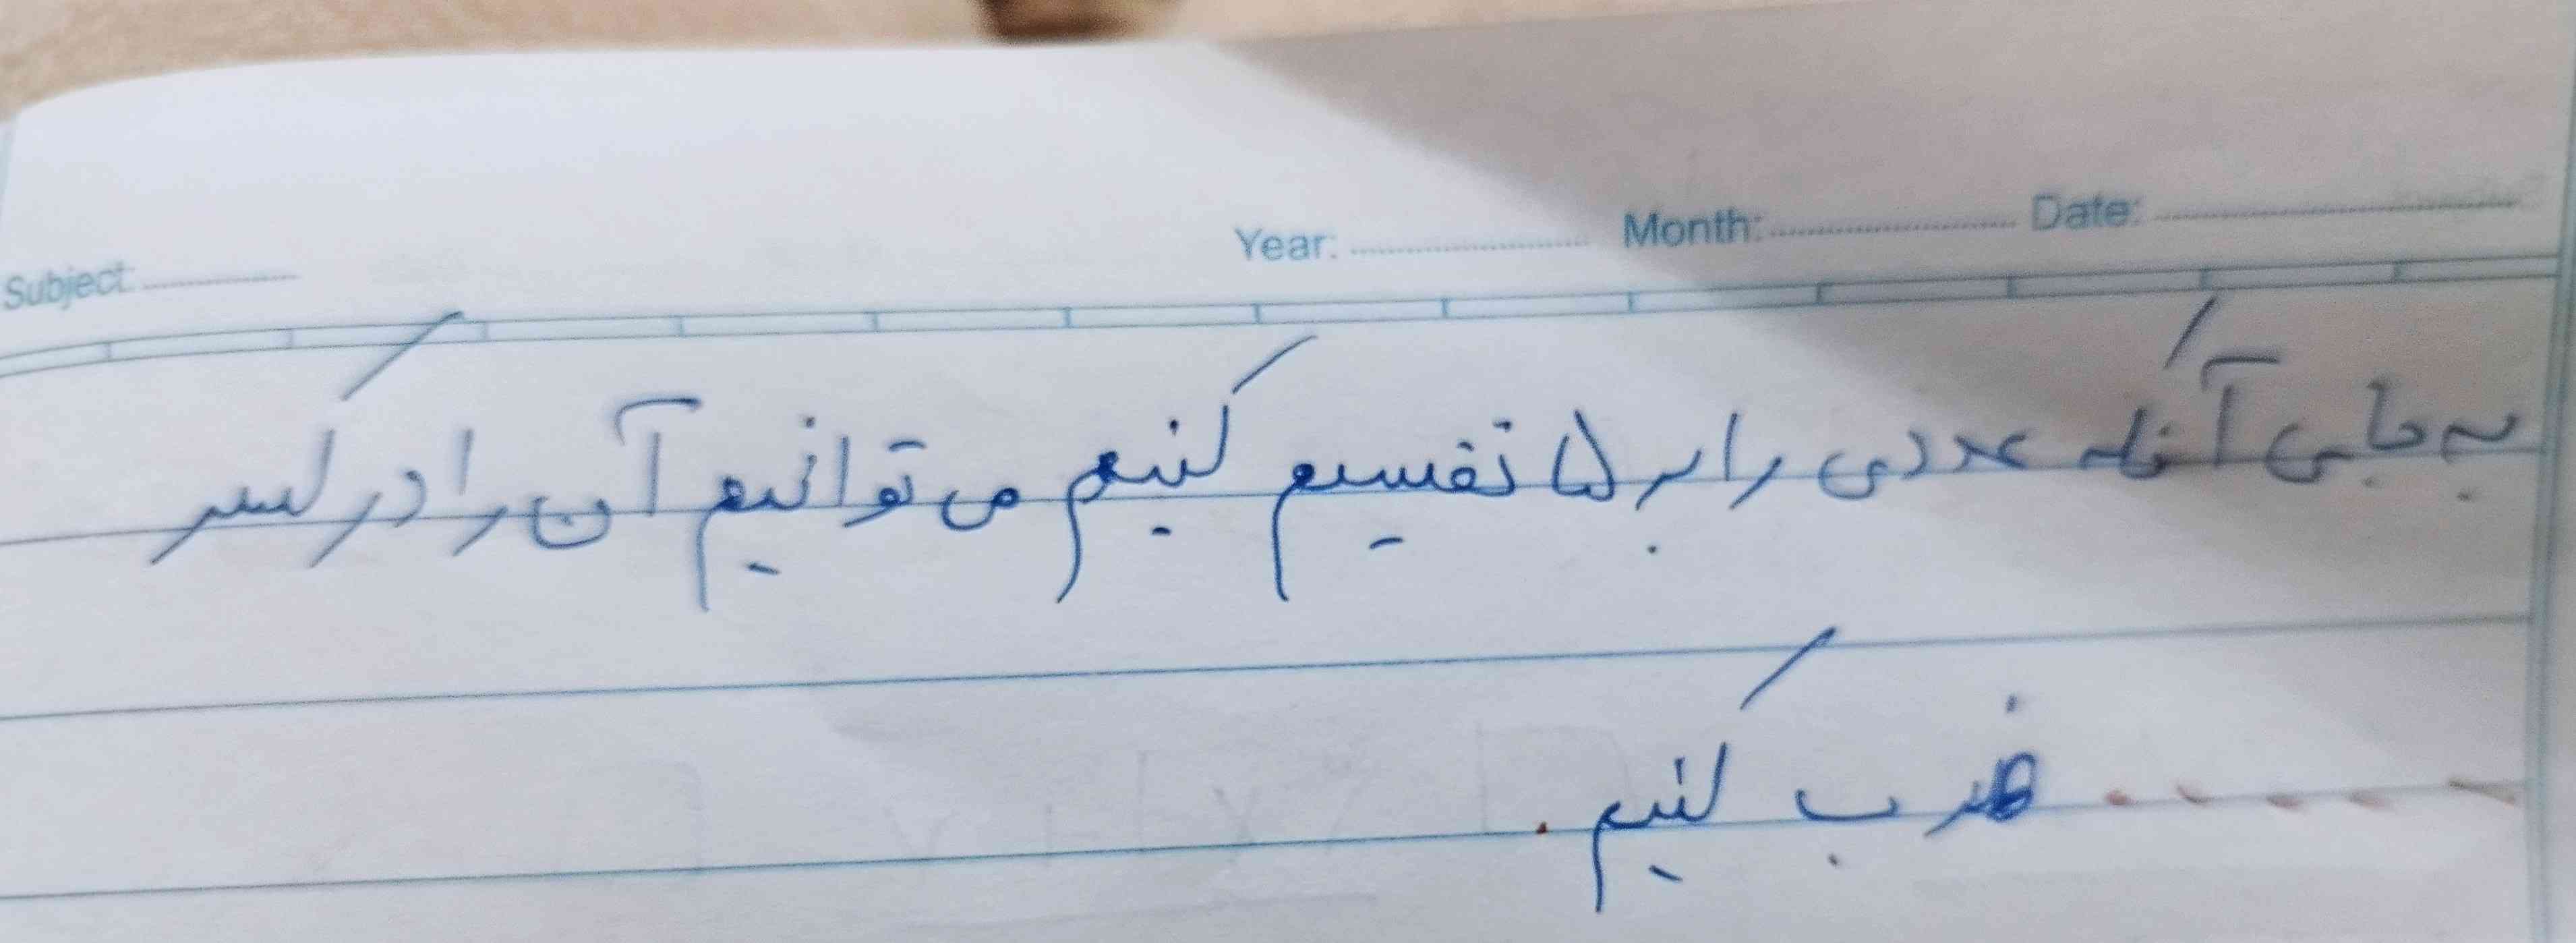 Year: ........ Month: ........ Date: ........
Subject: ........
به جایی آنکه عددی را بر ۵ تقسیم کنیم می توانیم آن را در کسر
...... ضرب کنیم .